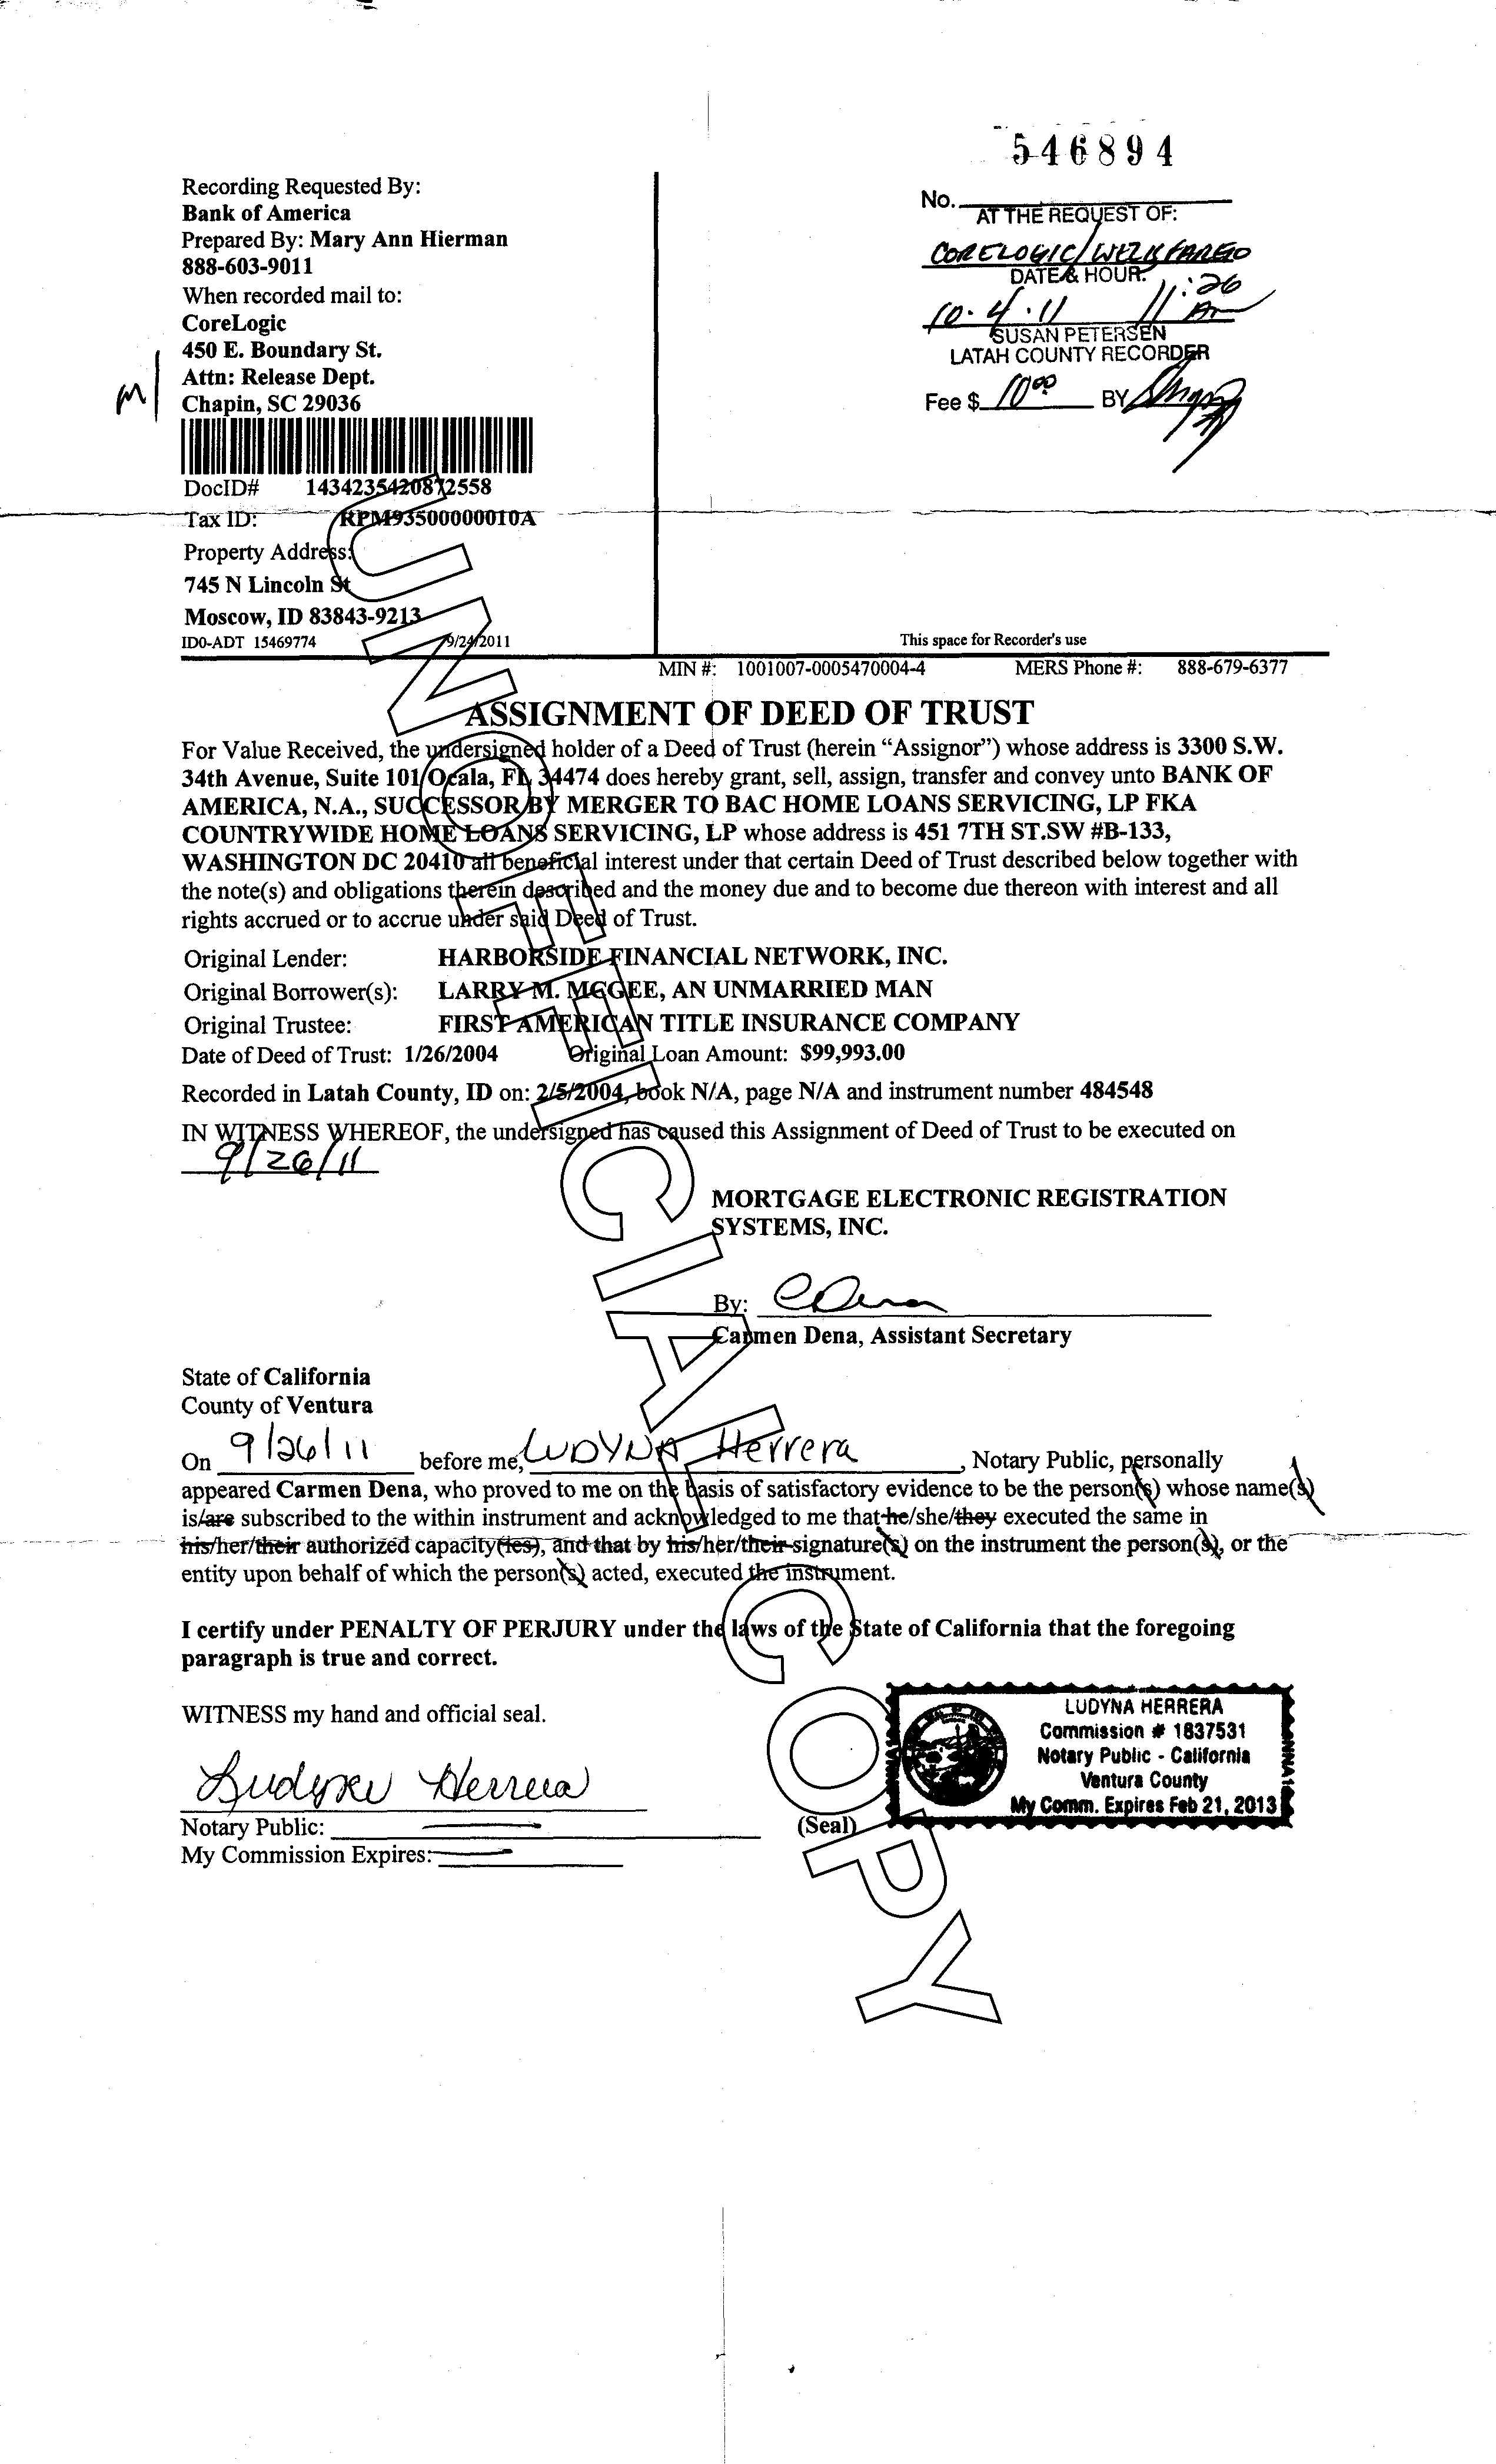 546894
No.
AT THE REQUEST OF:
CORELOGIC/WELLS FARGO
DATE & HOUR:
10.4.11 11:26 Am
SUSAN PETERSEN
LATAH COUNTY RECORDER
Fee $ 10.00 BY
Recording Requested By:
Bank of America
Prepared By: Mary Ann Hierman
888-603-9011
When recorded mail to:
CoreLogic
450 E. Boundary St.
Attn: Release Dept.
M
Chapin, SC 29036
DocID# 1434235420872558
Tax ID: RPM93500000010A
Property Address:
745 N Lincoln St
Moscow, ID 83843-9213
ID0-ADT 15469774 9/24/2011
This space for Recorder's use
MIN #: 1001007-0005470004-4 MERS Phone #: 888-679-6377
ASSIGNMENT OF DEED OF TRUST
For Value Received, the undersigned holder of a Deed of Trust (herein “Assignor”) whose address is 3300 S.W.
34th Avenue, Suite 101 Ocala, FL 34474 does hereby grant, sell, assign, transfer and convey unto BANK OF
AMERICA, N.A., SUCCESSOR BY MERGER TO BAC HOME LOANS SERVICING, LP FKA
COUNTRYWIDE HOME LOANS SERVICING, LP whose address is 451 7TH ST.SW #B-133,
WASHINGTON DC 20410 all beneficial interest under that certain Deed of Trust described below together with
the note(s) and obligations therein described and the money due and to become due thereon with interest and all
rights accrued or to accrue under said Deed of Trust.
Original Lender: HARBORSIDE FINANCIAL NETWORK, INC.
Original Borrower(s): LARRY M. MCGEE, AN UNMARRIED MAN
Original Trustee: FIRST AMERICAN TITLE INSURANCE COMPANY
Date of Deed of Trust: 1/26/2004 Original Loan Amount: $99,993.00
Recorded in Latah County, ID on: 2/5/2004, book N/A, page N/A and instrument number 484548
IN WITNESS WHEREOF, the undersigned has caused this Assignment of Deed of Trust to be executed on
9/26/11
MORTGAGE ELECTRONIC REGISTRATION
SYSTEMS, INC.
By: CDena
Carmen Dena, Assistant Secretary
State of California
County of Ventura
On 9/26/11 before me, LUDYNA Herrera, Notary Public, personally
appeared Carmen Dena, who proved to me on the basis of satisfactory evidence to be the person(s) whose name(s)
is/are subscribed to the within instrument and acknowledged to me that he/she/they executed the same in
his/her/their authorized capacity(ies), and that by his/her/their signature(s) on the instrument the person(s), or the
entity upon behalf of which the person(s) acted, executed the instrument.
I certify under PENALTY OF PERJURY under the laws of the State of California that the foregoing
paragraph is true and correct.
WITNESS my hand and official seal.
Ludyna Herrera
Notary Public:
My Commission Expires:
(Seal)
LUDYNA HERRERA
Commission # 1837531
Notary Public - California
Ventura County
My Comm. Expires Feb 21, 2013
UNOFFICIAL COPY